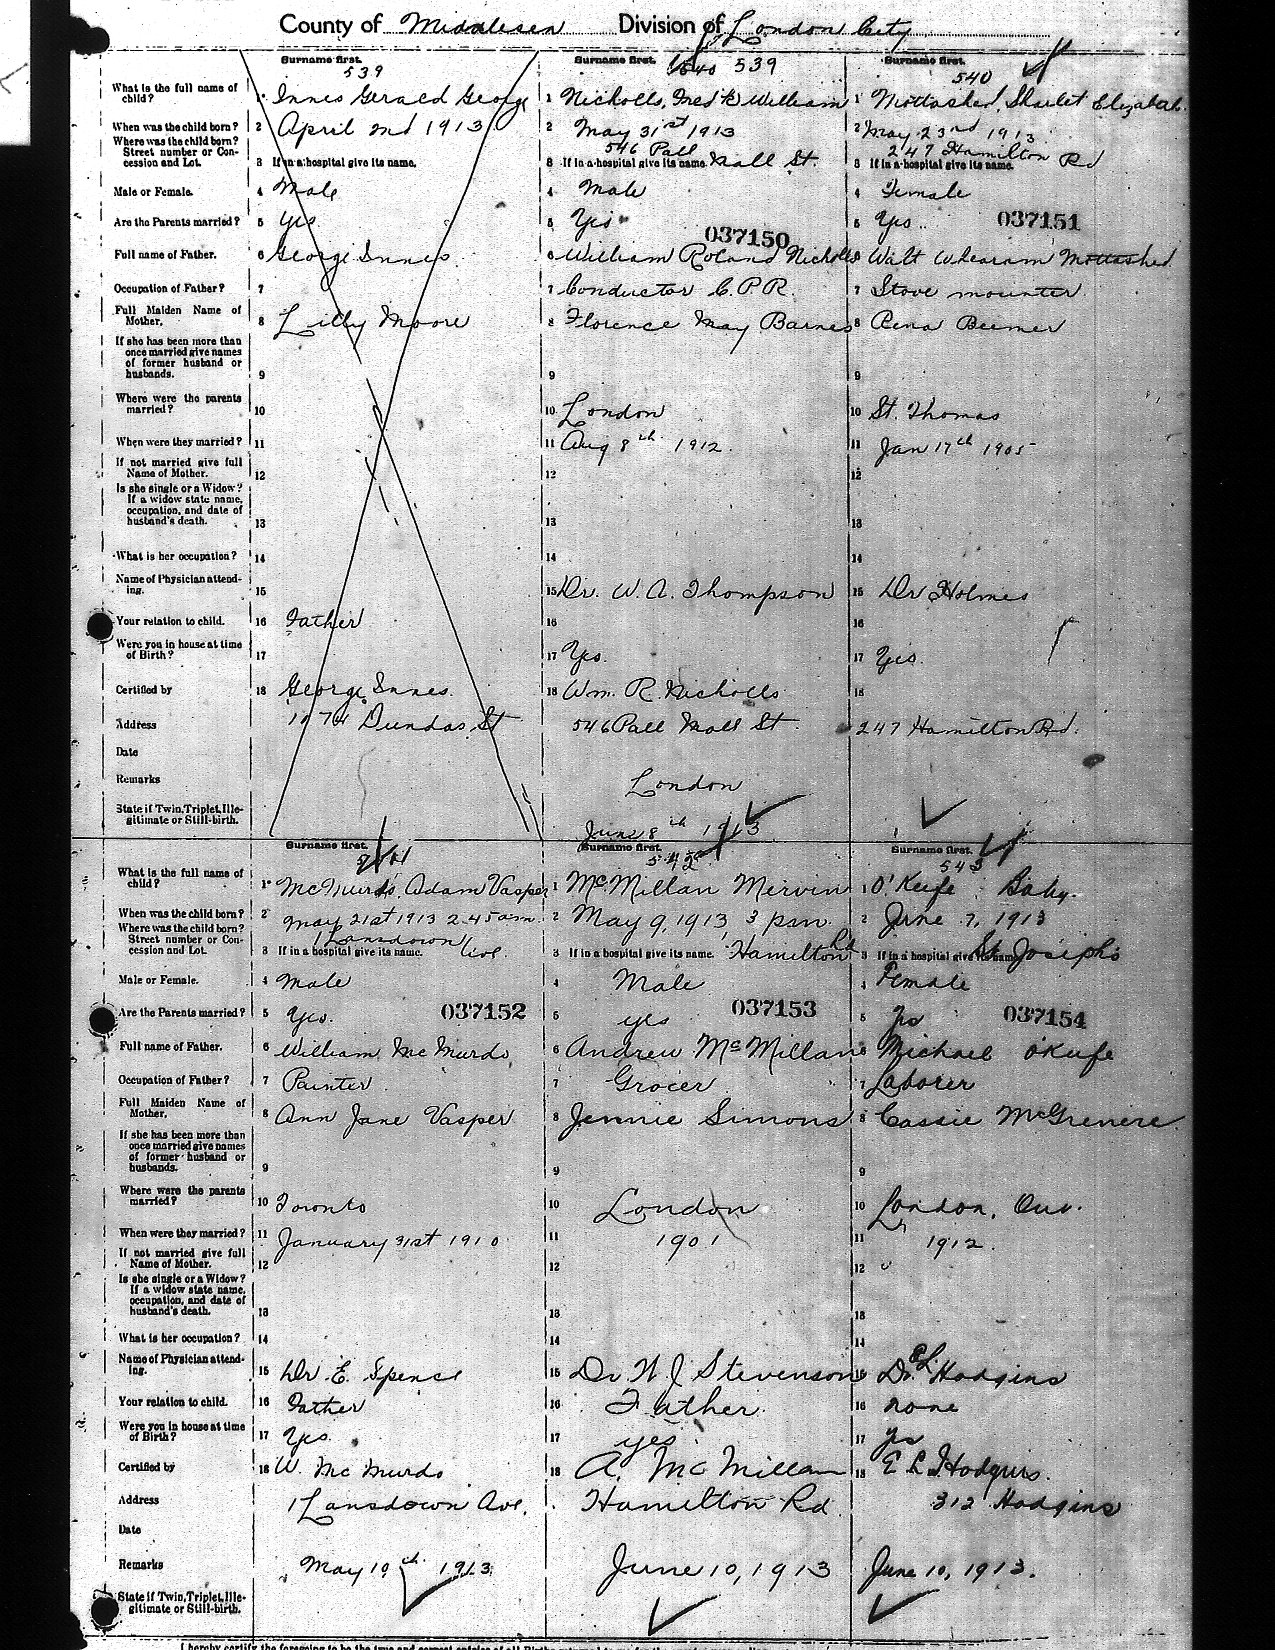 County of Middlesex Division of London City
Surname first. Surname first. Surname first.
539 540 539 540
What is the full name of child? 1 Innes Gerald George 1 Nicholls, Fred'k William 1 Mottashed, Sharlet Elizabeth
When was the child born? 2 April 2nd 1913 2 May 31st 1913 2 May 23rd 1913
Where was the child born? Street number or Concession and Lot. 3 If in a hospital give its name. 3 546 Pall If in a hospital give its name. Mall St. 3 247 Hamilton Rd If in a hospital give its name.
Male or Female. 4 Male 4 Male 4 Female
Are the Parents married? 5 yes 5 Yes 037150 5 Yes 037151
Full name of Father. 6 George Innes 6 William Roland Nicholls 6 Walt Mottashed
Occupation of Father? 7 7 Conductor C.P.R. 7 Stove mounter
Full Maiden Name of Mother. 8 Lilly Moore 8 Florence May Barnes 8 Rena Beemer
If she has been more than once married give names of former husband or husbands. 9 9 9
Where were the parents married? 10 10 London 10 St. Thomas
When were they married? 11 11 Aug 8th 1912 11 Jan 17th 1905
If not married give full Name of Mother. 12 12 12
Is she single or a Widow? If a widow state name, occupation, and date of husband's death. 13 13 13
What is her occupation? 14 14 14
Name of Physician attending. 15 15 Dr. W. A. Thompson 15 Dr Holmes
Your relation to child. 16 Father 16 16
Were you in house at time of Birth? 17 17 Yes. 17 Yes.
Certified by 18 George Innes. 18 Wm. R. Nicholls 18
Address 1074 Dundas St 546 Pall Mall St. 247 Hamilton Rd.
Date
Remarks London
State if Twin, Triplet, Illegitimate or Still-birth. June 8th 1913
Surname first. Surname first. Surname first.
541 542 543
What is the full name of child? 1 McMurdo, Adam Vasper 1 McMillan Mervin 1 O'Keefe Baby.
When was the child born? 2 May 21st 1913 2.45 am. 2 May 9, 1913, 3 pm. 2 June 7, 1913
Where was the child born? Street number or Concession and Lot. 3 1 Lansdown If in a hospital give its name. Ave. 3 If in a hospital give its name. Hamilton Rd 3 If in a hospital give its name. St. Joseph's
Male or Female. 4 Male 4 Male 4 Female
Are the Parents married? 5 Yes. 037152 5 yes 037153 5 yes 037154
Full name of Father. 6 William McMurdo 6 Andrew McMillan 6 Michael O'Keefe
Occupation of Father? 7 Painter 7 Grocer 7 Laborer
Full Maiden Name of Mother. 8 Ann Jane Vasper 8 Jennie Simons 8 Cassie McGrenere
If she has been more than once married give names of former husband or husbands. 9 9 9
Where were the parents married? 10 Toronto 10 London 10 London, Ont.
When were they married? 11 January 31st 1910 11 1901 11 1912
If not married give full Name of Mother. 12 12 12
Is she single or a Widow? If a widow state name, occupation, and date of husband's death. 13 13 13
What is her occupation? 14 14 14
Name of Physician attending. 15 Dr. E. Spence 15 Dr W J Stevenson 15 Dr. E L Hodgins
Your relation to child. 16 Father 16 Father 16 none
Were you in house at time of Birth? 17 Yes. 17 yes 17 yes
Certified by 18 W. McMurdo 18 A. McMillan 18 E L Hodgins.
Address 1 Lansdown Ave. Hamilton Rd 312 Hodgins
Date
Remarks May 19th 1913. June 10, 1913 June 10, 1913.
State if Twin, Triplet, Illegitimate or Still-birth.
I hereby certify the foregoing to be the true and correct entries of all Births